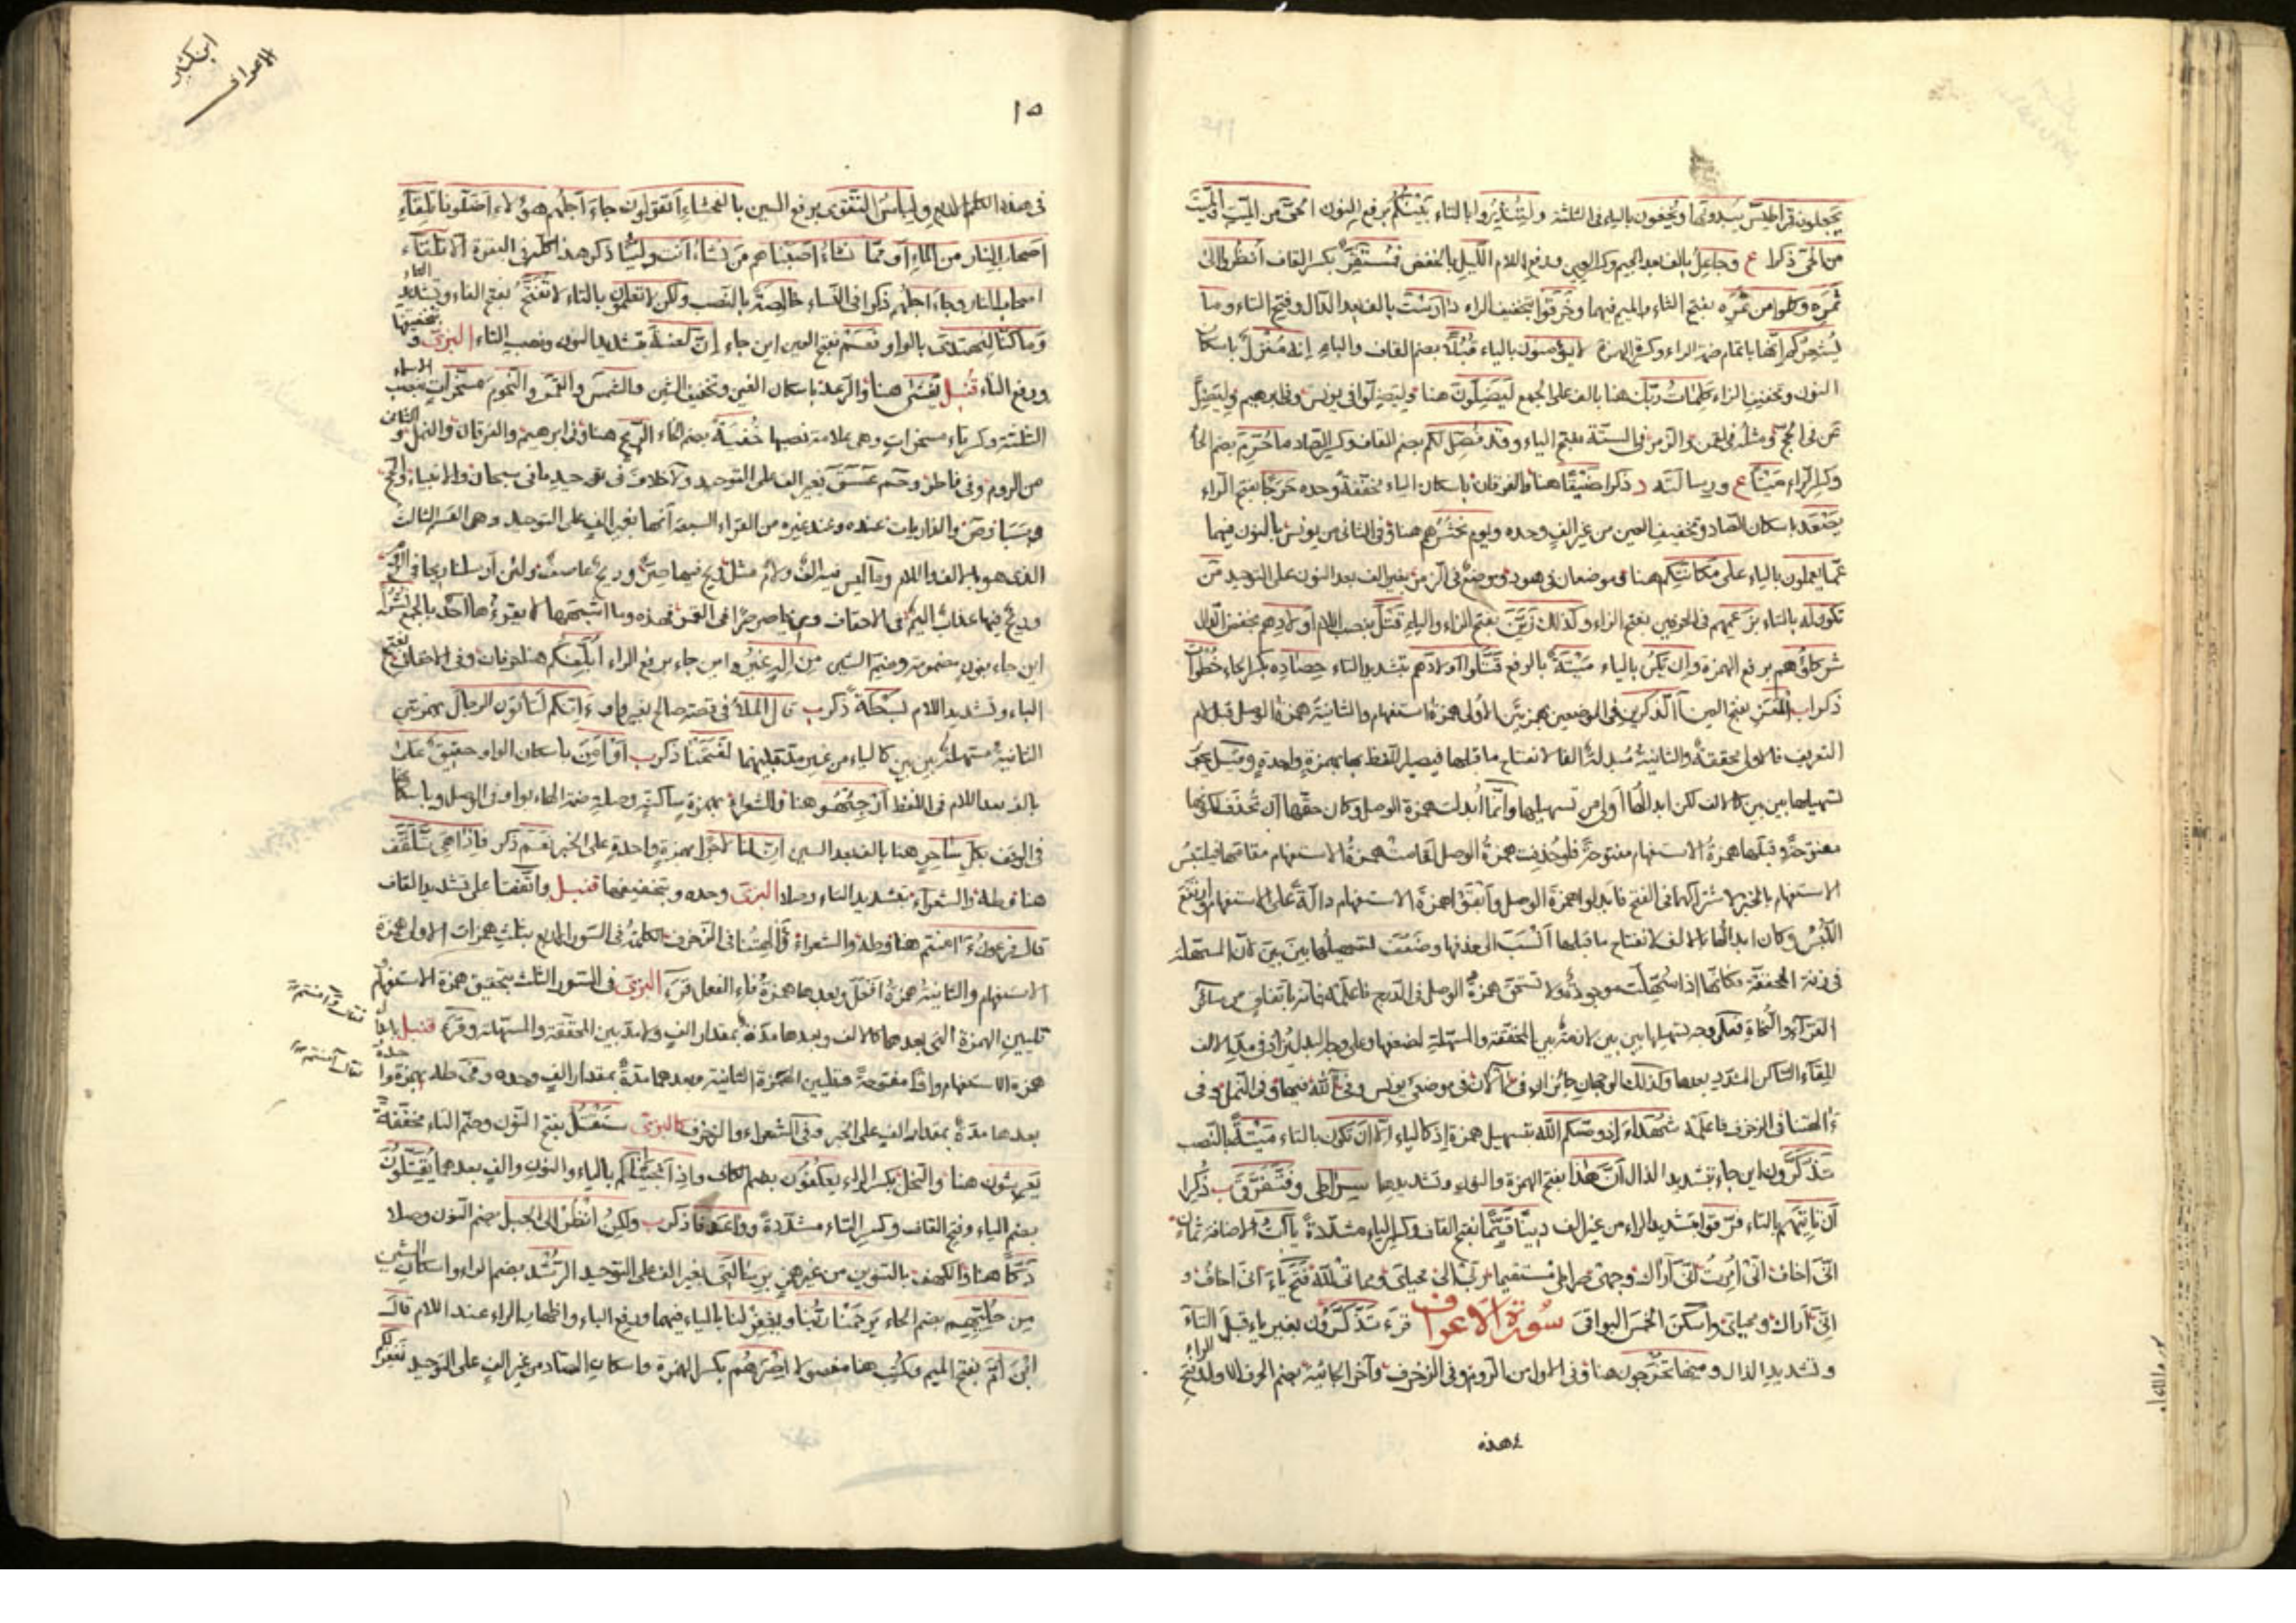 يجعلونه قراطيس يبدونها ويخفون بالياء فى الثلثة ولينذروا بالتاء بينكم برفع النون الحى من الميت والميت
من الحى ذكرا ع وجاعل بالف بعد الجيم وكسر العين ورفع اللام الليل بالخفض فمستقر بكسر القاف انظروا الى
ثمره وكلوا من ثمره بفتح الثاء والميم فيهما وخرقوا بتخفيف الراء دارست بالف بعد الدال وفتح التاء وما
يشعركم انها باتمام ضمة الراء وكسر الهمزة لا يؤمنون بالياء قبلا بضم القاف والباء انه منزل باسكان
النون وتخفيف الزاء كلمات ربك هنا بالف على الجمع ليضلون هنا وليضلوا فى يونس وفى ابرهيم وليضل
عن فى الحج ومثله فى لقمن والزمر فى الستة بفتح الياء وقد فصل لكم بضم الفاء وكسر الصاد ما حرم بضم الحا
وكسر الراء ميتا ع ورسالته د ذكرا ضيقا هنا والفرقان باسكان الياء مخففة وحده حرجا بفتح الراء
يصعد باسكان الصاد وتخفيف العين من غير الف وحده ويوم نحشرهم هنا وفى الثانى من يونس بالنون فيهما
عما يعملون بالياء على مكانتكم هنا وموضعان فى هود وموضع فى الزمر بغير الف بعد النون على التوحيد من
تكون له بالتاء بزعمهم فى الحرفين بفتح الزاء وكذلك زين بفتح الزاء والياء قتل بنصب اللام اولادهم بخفض الدال
شركاؤهم برفع الهمزة وان يكن بالياء ميتة بالرفع قتلوا اولادهم بتشديد التاء حصاده بكسر الحاء خطوات
ذكراب المعز بفتح العين آلذكرين فى الموضعين بهمزتين الاولى همزة استفهام والثانية همزة الوصل قبل لام
التعريف فالاولى محققة والثانية مبدلة الفا لانفتاح ما قبلها فيصير اللفظ بها بهمزة واحدة ومد وقيل يجوز
تسهيلها بين بين كالالف لكن ابدالها اولى من تسهيلها وانما ابدلت همزة الوصل وكان حقها ان تحذف لكونها
مفتوحة وقبلها همزة الاستفهام مفتوحة فلو حذفت همزة الوصل لقامت همزة الاستفهام مقامها فيلتبس
الاستفهام بالخبر لاشتراكهما فى الفتح فابدلوا همزة الوصل وابقوا همزة الاستفهام دالة على الاستفهام وارتفع
اللبس وكان ابدالها بالالف لانفتاح ما قبلها انسب الى حذفها وضعف تسهيلها بين بين لان المسهلة
فى زنة المحققة فكانها اذا سهلت موجودة ولا تستحق همزة الوصل فى الدرج فاعلمه
القراء والنحاة فعلى وجه تسهيلها بين بين لا مد بين المحققة والمسهلة لضعفها وعلى وجه البدل يزاد فى مد الالف
للقاء الساكن المشدد بعدها وكذلك الوجهان جائزان فى آلآن فى موضعى يونس وفى آلله فيها وفى النمل وفى
ءالهتنا فى الزخرف فاعلمه شهداء اذ وصيكم الله بتسهيل همزة اذ كالياء الا ان تكون بالتاء ميتة بالنصب
تذكرون اين جاء بتشديد الذال ان هذا بفتح الهمزة والنون وتشديدها سراطى وفتفرق ب ذكرا
ان تاتيهم بالتاء فرقوا بتشديد الراء من غير الف دينا قيما بفتح القاف وكسر الياء مشددة ياآت الاضافة ثمان
انى اخاف انى امرت انى اراك وجهى صراطى مستقيما ربى الى محياى ومماتى لله فتح ياء انى اخاف و
انى اراك ومحياى واسكن الخمس البواقى سورة الاعراف قرء تذكرون بغير ياء قبل التاء
وتشديد الذال ومنها تخرجون هنا وفى الاولى من الروم وفى الزخرف وآخر الجاثية بضم الحرف الاول وفتح الراء
هذه
ابن كثير
الاعراف
١٥
فى هذه الكلم الاربع ولباس التقوى برفع السين بالفحشاء اتقولون جاء اجلهم هؤلاء اضلونا تلقاء
اصحاب النار من الماء او مما نشاء اصبناهم من تشاء انت ولينا ذكر هذا الكلم فى البقرة الا تلقاء
اصحاب النار وجاء اجلهم ذكرا فى النساء خالصة بالنصب ولكن لا تعلمون بالتاء لا تفتح بفتح الفاء وتشديد التاء
وما كنا لنهتدى بالواو نعم بفتح العين اين جاء ان لعنة بتشديد النون ونصب التاء البزى وبتخفيفها
ورفع التاء قنبل يغشى هنا والرعد باسكان الغين وتخفيف الشين والشمس والقمر والنجوم مسخرات بنصب الاسماء
الثلثة وكسر تاء مسخرات وهى علامة نصبها خفية بضم الخاء الريح هنا وفى ابرهيم والفرقان والنمل والثانى
من الروم وفى فاطر وحم عسق بغير الف على التوحيد ولا خلاف فى توحيد ما فى سبحان والانبياء والحج
وسبأ وص والذاريات عنده وعند غيره من القراء السبعة انها بغير الف على التوحيد وهى القسم الثالث
الذى هو بالالف واللام وما ليس فيه الف ولام مثل ريح فيها صر وريح عاصف ولئن ارسلنا ريحا فى الروم
وريح فيها عذاب اليم فى الاحقاف وريحا صرصرا فى القمر فهذه وما اشبهها لا يقرؤها احد بالجمع نشرا
اين جاء بنون مضمومة وضم الشين من اله غيره اين جاء برفع الراء ابلغكم هنا حرفان وفى الاحقاف بفتح
الباء وتشديد اللام بسطة ذكرب قال الملأ فى قصة صالح بغير واو ءانكم لتأتون الرجال بهمزتين
الثانية مسهلة بين بين كالياء من غير مد قبلهما لفتحنا ذكرب او امن باسكان الواو حقيق على
بالف بعد اللام فى اللفظ ارجئهو هنا والشعراء بهمزة ساكنة وصلة ضمة الهاء بواو فى الوصل وباسكانها
فى الوقف بكل ساحر هنا بالف بعد السين ان لنا لاجرا بهمزة واحدة على الخبر نعم ذكر فاذا هى تلقف
هنا وطه والشعراء بتشديد التاء وصلا البزى وحده وبتخفيفها قنبل واتفقا على تشديد القاف
قال فرعون ءاامنتم هنا وطه والشعراء وءالهتنا فى الزخرف الكلمة فى السور الاربع بثلث همزات الاولى همزة
الاستفهام والثانية همزة افعل وبعدها همزة فاء الفعل قرء البزى فى السور الثلث بتحقيق همزة الاستفهام
تليين الهمزة التى بعدها كالالف وبعدها مدة بمقدار الف ولا مد بين المحققة والمسهلة وقرء قنبل بابدال
همزة الاستفهام واوا مفتوحة وتليين الهمزة الثانية وبعدها مدة بمقدار الف وحده وفى طه بهمزة واحدة
بعدها مدة بمقدار الف على الخبر وفى الشعراء والزخرف كالبزى سنقتل بفتح النون وضم التاء مخففة
يعرشون هنا والنحل بكسر الراء يعكفون بضم الكاف واذ انجيناكم بالياء والنون والف بعدها يقتلون
بضم الياء وفتح القاف وكسر التاء مشددة وواعدنا ذكرب ولكن انظر الى الجبل بضم النون وصلا
دكا هنا والكهف بالتنوين من غير همز برسالتى بغير الف على التوحيد الرشد بضم الراء واسكان الشين
من حليهم بضم الحاء يرحمنا ربنا ويغفر لنا بالياء فيهما ورفع الباء واظهار الراء عند اللام قال
ابن ام بفتح الميم وكتب هنا مفصولا اصرهم بكسر الهمزة واسكان الصاد من غير الف على التوحيد نغفر لكم